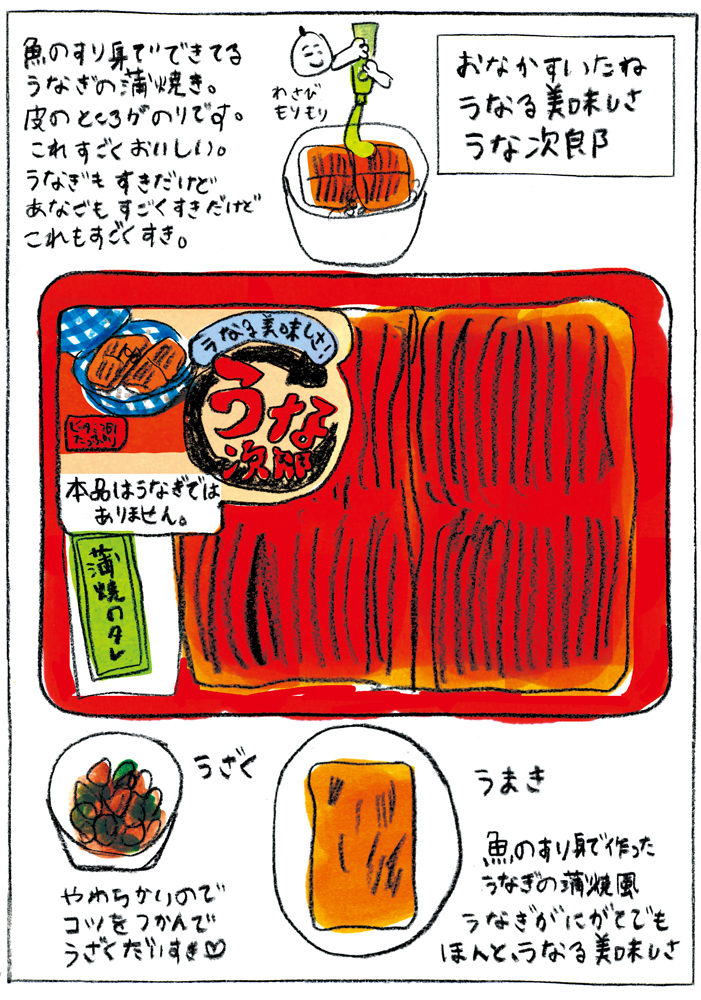 おなかすいたね
うなる美味しさ
うな次郎
魚のすり身でできてる
うなぎの蒲焼き。
皮のところがのりです。
これすごくおいしい。
うなぎもすきだけど
あなごもすごくすきだけど
これもすごくすき。
わさび
もりもり
うなる美味しさ!
うな
次郎
本品はうなぎでは
ありません。
蒲焼のタレ
うざく
やわらかいので
コツをつかんで
うざくだいすき♡
うまき
魚のすり身で作った
うなぎの蒲焼風
うなぎがにがてでも
ほんと、うなる美味しさ